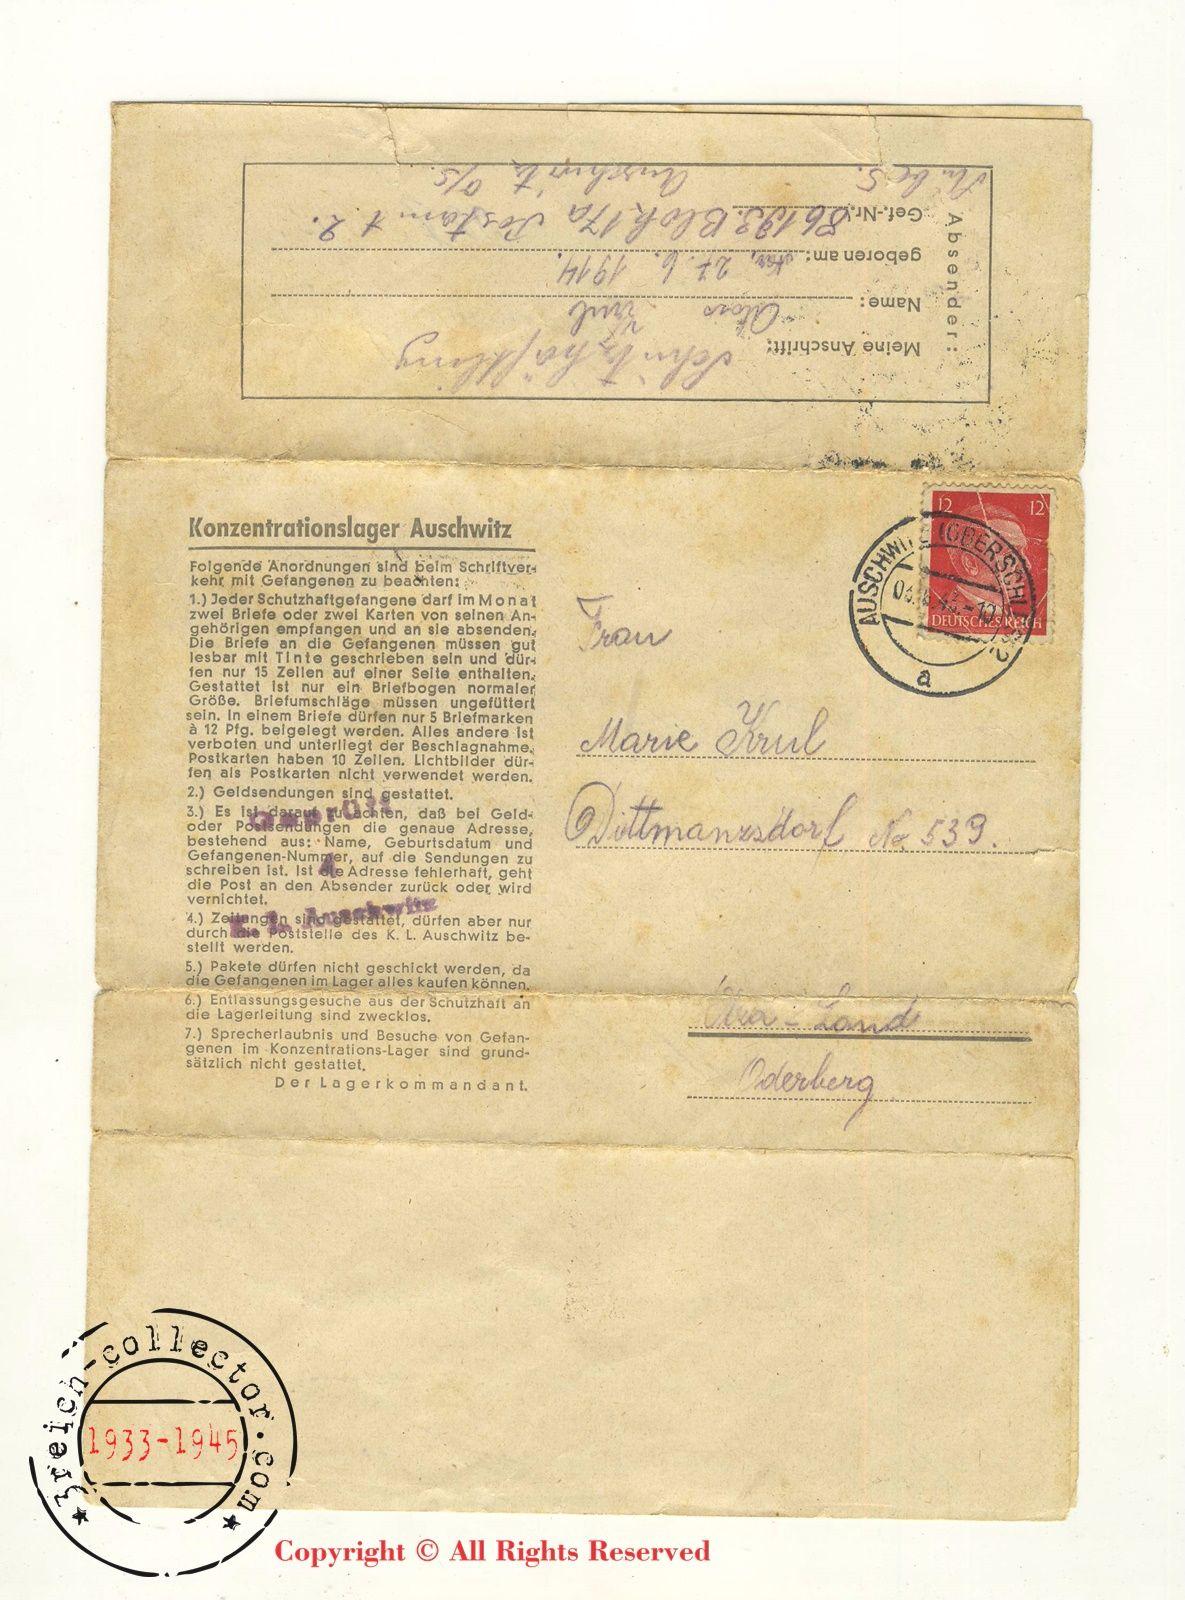 Absender:
Meine Anschrift: Schutzhäftling
Name: Krul
geboren am: 27. 6. 1914.
Gef.-Nr. 86193. Block 17a Postamt 2.
Stube 5. Auschwitz O/S.
Konzentrationslager Auschwitz
Folgende Anordnungen sind beim Schriftver-
kehr mit Gefangenen zu beachten:
1.) Jeder Schutzhaftgefangene darf im Monat
zwei Briefe oder zwei Karten von seinen An-
gehörigen empfangen und an sie absenden.
Die Briefe an die Gefangenen müssen gut
lesbar mit Tinte geschrieben sein und dür-
fen nur 15 Zeilen auf einer Seite enthalten.
Gestattet ist nur ein Briefbogen normaler
Größe. Briefumschläge müssen ungefüttert
sein. In einem Briefe dürfen nur 5 Briefmarken
à 12 Pfg. beigelegt werden. Alles andere ist
verboten und unterliegt der Beschlagnahme.
Postkarten haben 10 Zeilen. Lichtbilder dür-
fen als Postkarten nicht verwendet werden.
2.) Geldsendungen sind gestattet.
3.) Es ist darauf zu achten, daß bei Geld-
oder Postsendungen die genaue Adresse,
bestehend aus: Name, Geburtsdatum und
Gefangenen-Nummer, auf die Sendungen zu
schreiben ist. Ist die Adresse fehlerhaft, geht
die Post an den Absender zurück oder wird
vernichtet.
4.) Zeitungen sind gestattet, dürfen aber nur
durch die Poststelle des K. L. Auschwitz be-
stellt werden.
5.) Pakete dürfen nicht geschickt werden, da
die Gefangenen im Lager alles kaufen können.
6.) Entlassungsgesuche aus der Schutzhaft an
die Lagerleitung sind zwecklos.
7.) Sprecherlaubnis und Besuche von Gefan-
genen im Konzentrations-Lager sind grund-
sätzlich nicht gestattet.
Der Lagerkommandant.
Geprüft
4
K. L. Auschwitz
12 12
DEUTSCHES REICH
AUSCHWITZ (OBERSCHLES) 2
a
Frau
Marie Krul
Dittmannsdorf No 539.
Land
Oderberg
3reich-collector.com
1933-1945
Copyright © All Rights Reserved